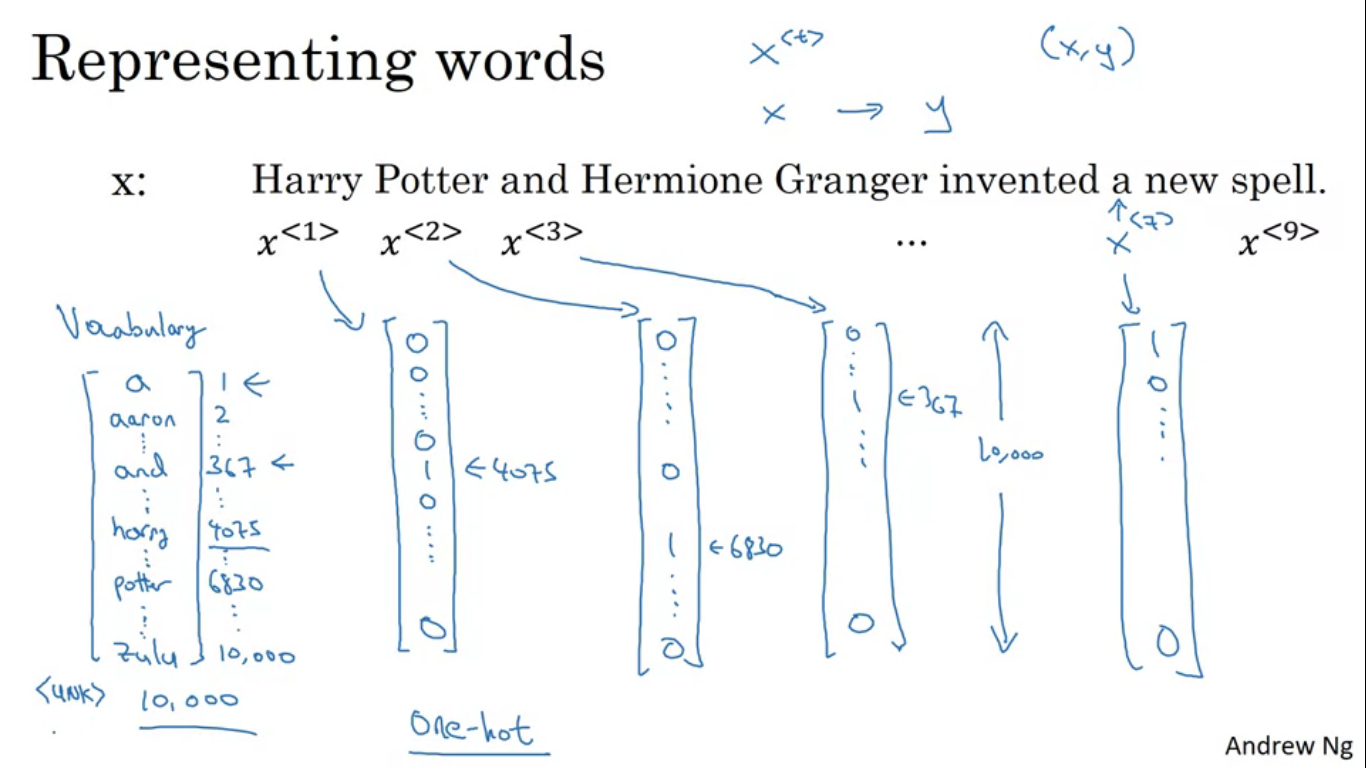 Representing words
x<t> (x,y)
x → y
x: Harry Potter and Hermione Granger invented a new spell.
x<1> x<2> x<3> ... x<7> x<9>
Vocabulary
a 1 ←
aaron 2
and 367 ←
harry 4075
potter 6830
zulu 10,000
<UNK> 10,000
0
0
0
1 ←4075
0
0
0
0
1 ←6830
0
0
1 ←367
0
10,000
1
0
0
One-hot
Andrew Ng